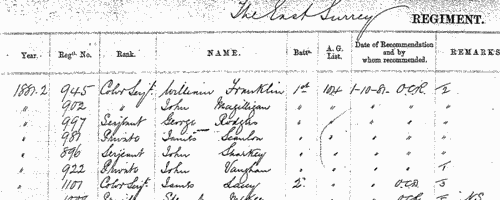 The East Surrey REGIMENT.
Year. Regtl. No. Rank. NAME. Battn. A. G. List. Date of Recommendation and by whom recommended. REMARKS
1881-2 945 Color Serjt. William Franklin 1st 104 1-10-81 O.C.R. 2
" 902 " John Magilligan " " " " "
" 997 Serjeant George Rodgers " " " "
" 987 Private James Scanlon " " " "
" 896 Serjeant John Sharkey " " " "
" 922 Private John Vaughan " " " "
" 1101 Color Serjt. James Lacey 2 " " O.C.R.